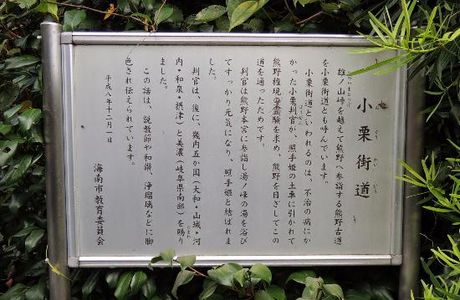 小栗街道
雄ノ山峠を越えて熊野へ参詣する熊野古道
を小栗街道とも呼んでいます。
小栗街道といわれるのは、不治の病にか
かった小栗判官が、照手姫の土車に引かれて
熊野権現の霊験を求め、熊野を目ざしてこの
道を通ったためです。
判官は熊野本宮に参詣し湯ノ峰の湯を浴び
てすっかり元気になり、照手姫と結ばれま
した。
判官は、後に、畿内五か国(大和・山城・河
内・和泉・摂津)と美濃(岐阜県南部)を賜り
ました。
この話は、説教節や和讃、浄瑠璃などに脚
色され伝えられています。
平成八年十二月一日
海南市教育委員会